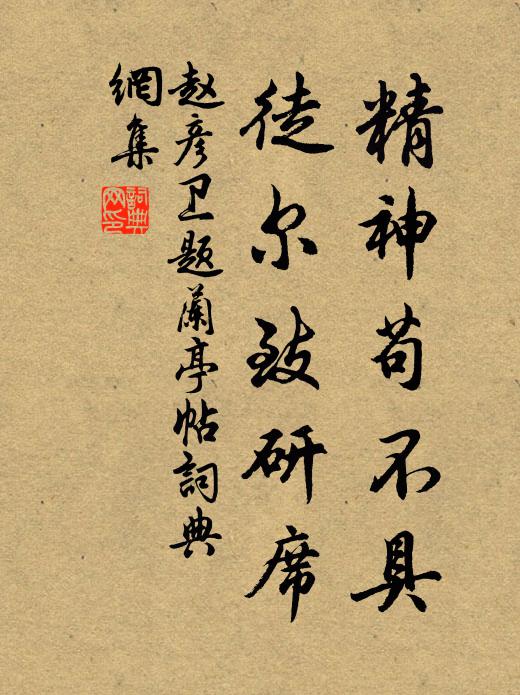 精神苟不具
徒尔致研席
赵彦卫题蘭亭帖詞典
網集
詞典
网印